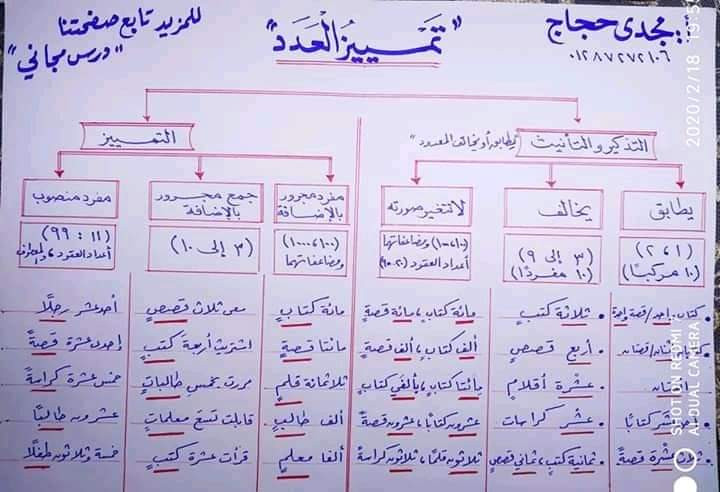 أ: مجدى حجاج
٠١٢٨٧٢٧٢١٠٦
"تمييز العدد"
للمزيد تابع صفحتنا
"درس مجاني"
التذكير والتأنيث "يطابق أو يخالف المعدود"
التمييز
يطابق
يخالف
لا تتغير صورته
مفرد مجرور بالإضافة
جمع مجرور بالإضافة
مفرد منصوب
(١، ٢)
(١٠ مركبًا)
(٣ إلى ٩)
(١٠ مفردًا)
ومضاعفاتها
أعداد العقود (٢٠-٩٠)
(١٠٠، ١٠٠٠)
ومضاعفاتهما
(٣ إلى ١٠)
(١١ : ٩٩)
أعداد العقود
كتاب واحد / قصة واحدة
• ثلاثة كتبٍ
مائة كتابٍ، مائة قصةٍ
مائة كتابٍ
معى ثلاث قصصٍ
أحد عشر رجلًا
• أربع قصصٍ
ألف كتابٍ، ألف قصةٍ
مائتا قصةٍ
اشتريت أربعة كتبٍ
إحدى عشرة قصةً
• عشرة أقلامٍ
مائتا كتابٍ، ألفي كتابٍ
ثلاثمائة قلمٍ
مررت بخمس طالباتٍ
خمس عشرة كراسةً
عشر كتابًا
• عشر كراسات
عشرون كتابًا، عشرون قصةً
ألف طالبٍ
قابلت تسع معلماتٍ
عشرون طالبًا
عشرة قصةً
• ثمانية كتبٍ، ثماني قصصٍ
ثلاثون قلمًا، ثلاثون كراسةً
ألفا معلمٍ
قرأت عشرة كتبٍ
خمسة وثلاثون طفلًا
2020/2/18
SHOT ON REDMI
AI DUAL CAMERA